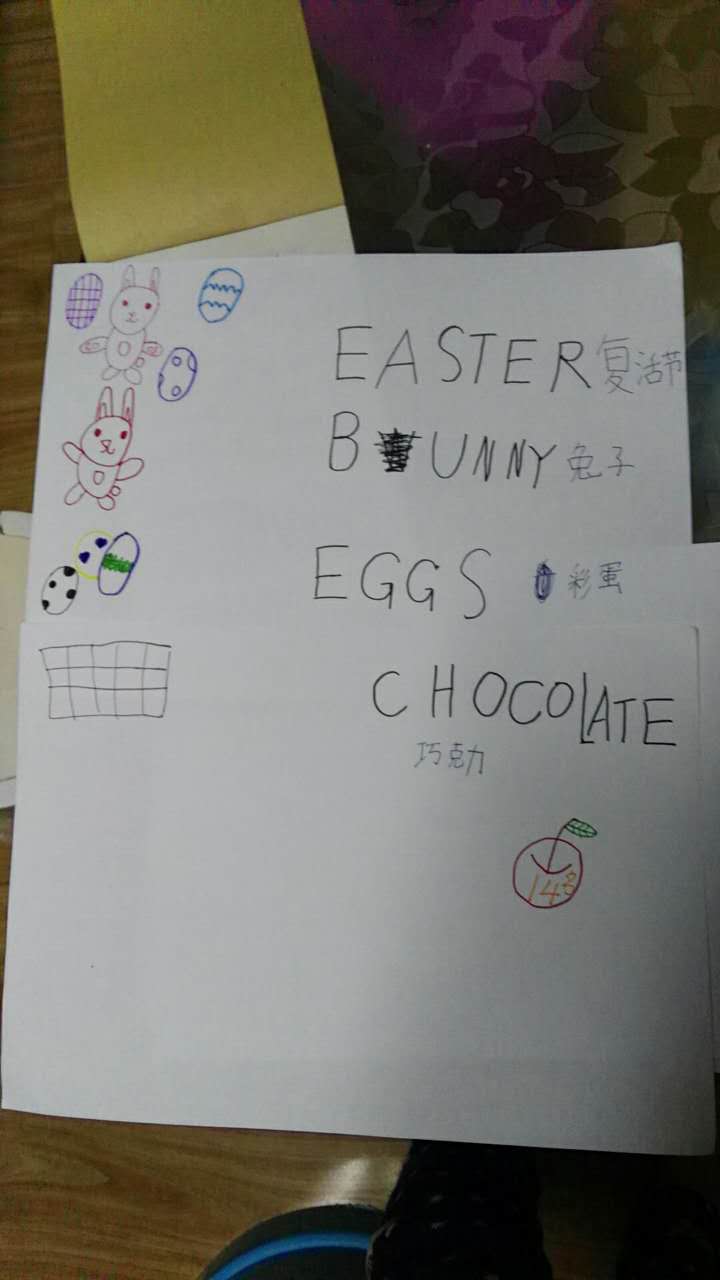 EASTER 复活节
BUNNY 兔子
EGGS 彩蛋
CHOCOLATE
巧克力
148